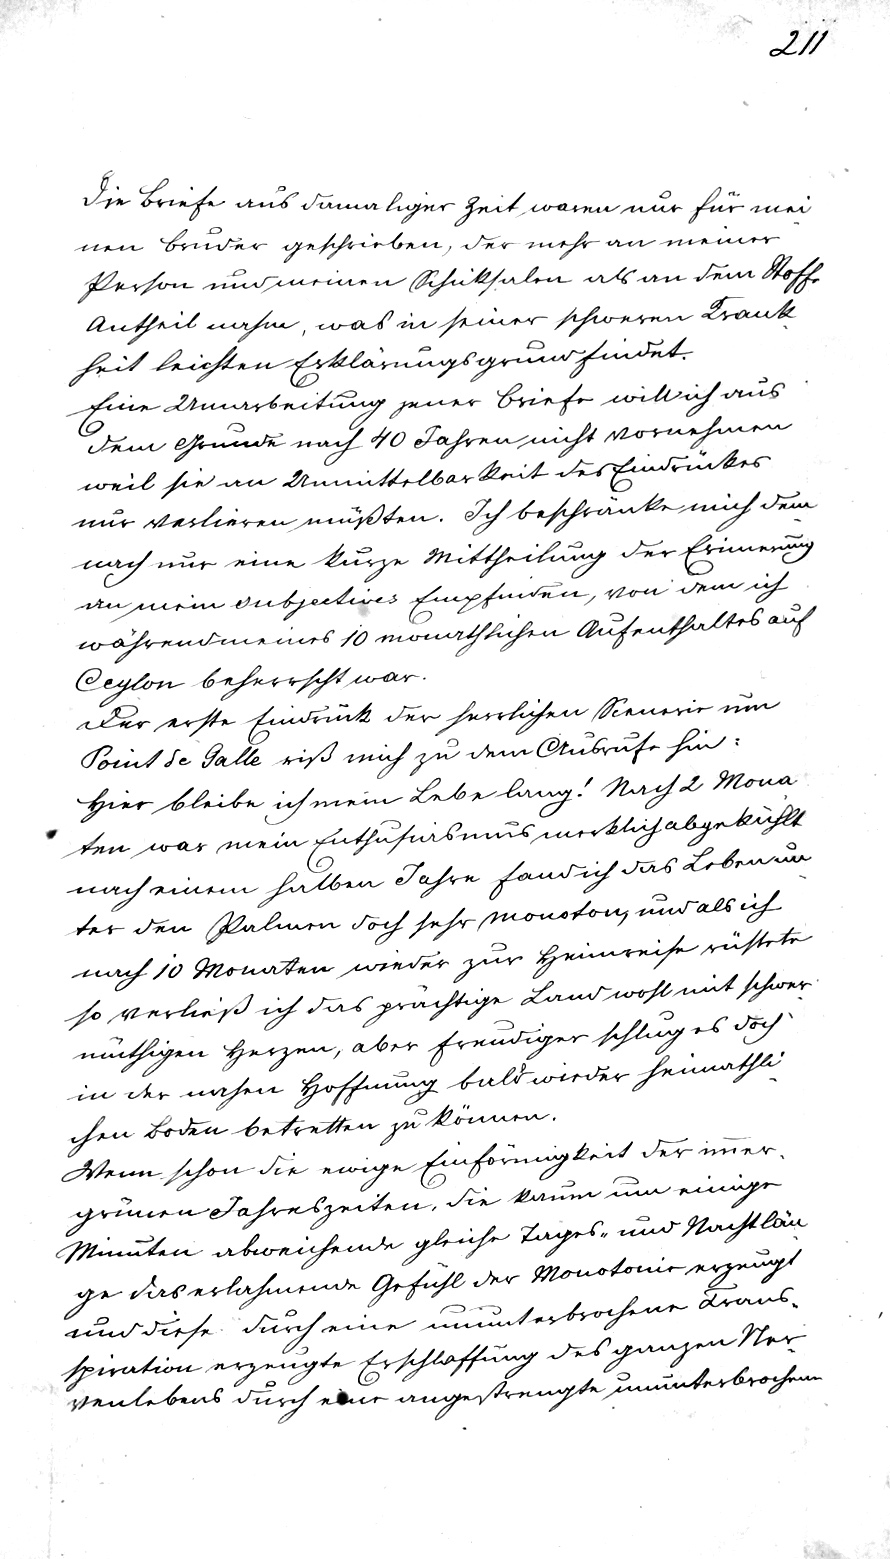 211
Die Briefe aus damaliger Zeit waren nur für mei
nen Bruder geschrieben, der mehr an meiner
Person und meinen Schiksalen als an dem Stoffe
Antheil nahm, was in seiner schweren Krank
heit leichten Erklärungsgrund findet.
Eine Umarbeitung jener Briefe will ich aus
dem Grunde nach 40 Jahren nicht vornehmen
weil sie an Unmittelbarkeit des Eindrückes
nur verlieren müßten. Ich beschränke mich dem
nach nur eine kurze Mittheilung der Erinerung
an mein subjectives Empfinden, von dem ich
während meines 10 monathlichen Aufenthaltes auf
Ceylon beherrscht war.
Der erste Eindrück der herrlichen Scenerie um
Point de Galle riß mich zu dem Ausrufe hin:
Hier bleibe ich mein Lebe lang! Nach 2 Mona
ten war mein Enthusiasmus merklich abgekühlt
nach einem halben Jahre fand ich das Leben un
ter den Palmen doch sehr monoton, und als ich
nach 10 Monaten wieder zur Heimreise rüstete
so verließ ich das prächtige Land wohl mit schwer
müthigen Herzen, aber freudiger schlug es doch
in der nahen Hoffnung bald wieder heimathli
chen Boden betretten zu können.
Wenn schon die ewige Einförmigkeit der im̅er
grünen Jahreszeiten, die kaum um einige
Minuten abweichende gleiche Tages- und Nachtlän
ge das erlahmende Gefühl der Monotonie erzeugt
und diese durch eine ununterbrochene Trans-
spiration erzeugte Erschlaffung des ganzen Ner
venlebens durch eine angestrengte ununterbrochene